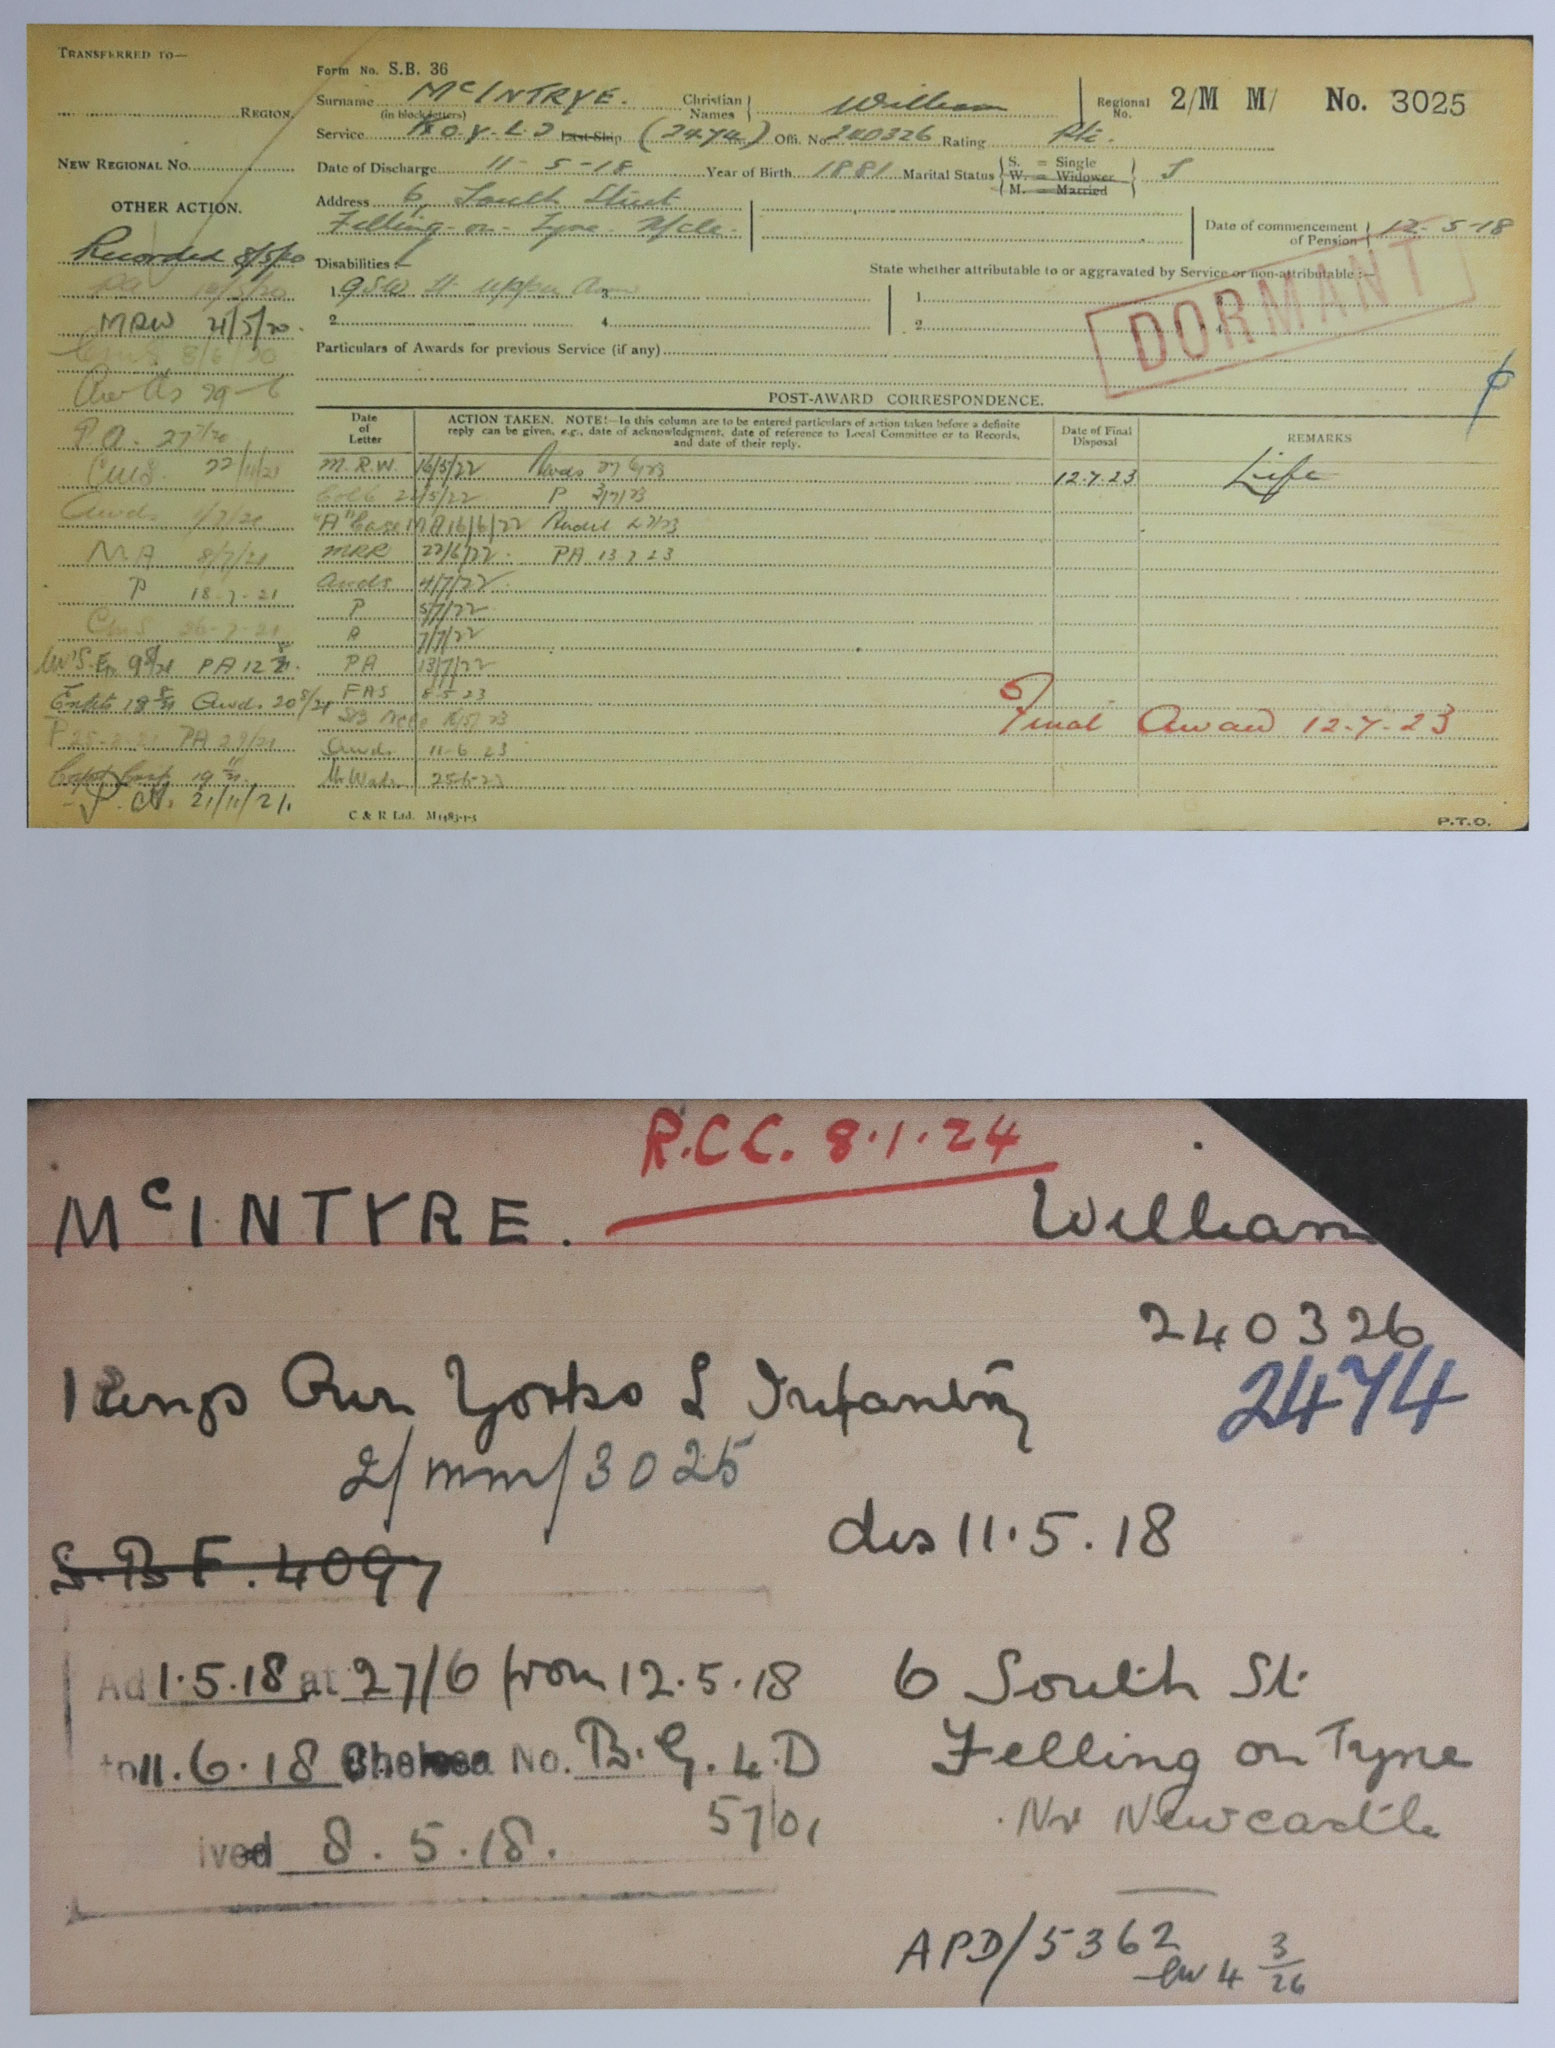 TRANSFERRED TO—
REGION
NEW REGIONAL No.
OTHER ACTION.
Recorded 8/5/20
PA 18/5/20
MRW 21/5/20.
8/6/20
29-6
P.A. 27 7/20
22/11/21
Awds
MA 8/7/21
P 18-7-21
26-7-21
PA 12
Awds. 20 8/21
PA
19 11/21
P. A. 21/11/21.
Form No. S.B. 36
Surname McINTRYE. Christian Names William Regional No. 2/M M/ No. 3025
(in block letters)
Service K.O.Y.L.I Last Ship (2474) Offl. No. 240326 Rating Pte.
Date of Discharge 11-5-18 Year of Birth 1881 Marital Status S. = Single W. = Widower M. = Married S
Address 6, South Street
Felling-on-Tyne N/cle.
Date of commencement of Pension 12-5-18
Disabilities:—
State whether attributable to or aggravated by Service or non-attributable:—
1 GSW Lt upper Arm 3 1
2 4 2 4
DORMANT
Particulars of Awards for previous Service (if any)
POST-AWARD CORRESPONDENCE.
Date of Letter
ACTION TAKEN. NOTE:—In this column are to be entered particulars of action taken before a definite
reply can be given, e.g., date of acknowledgment, date of reference to Local Committee or to Records,
and date of their reply.
Date of Final Disposal
REMARKS
M.R.W. 16/5/22 Awds 27/6/23 12.7.23 Life
22/5/22 P 3/7/23
"A" Case MA 16/6/22
MRR 22/6/22. PA 13.7.23
Awds 4/7/22
P 5/7/22
A 7/7/22
PA 13/7/22
FAS 8.5.23
Awds 11-6-23
25-6-23
Final Award 12-7-23
C & R Ltd. M1483-1-5
P.T.O.
R.C.C. 8.1.24
McINTYRE. William
240326
Kings Own Yorks L Infantry 2474
2/MM/3025
des 11.5.18
S.B F. 4097
Ad 1.5.18 at 27/6 from 12.5.18
to 11.6.18 Chelsea No. B.G.4.D
5701
ived 8.5.18.
6 South St.
Felling on Tyne
Nr Newcastle
APD/5362
4 3/26